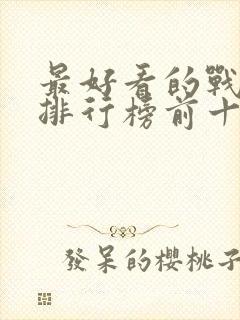 最好看的戰
排行榜前十
發呆的櫻桃子